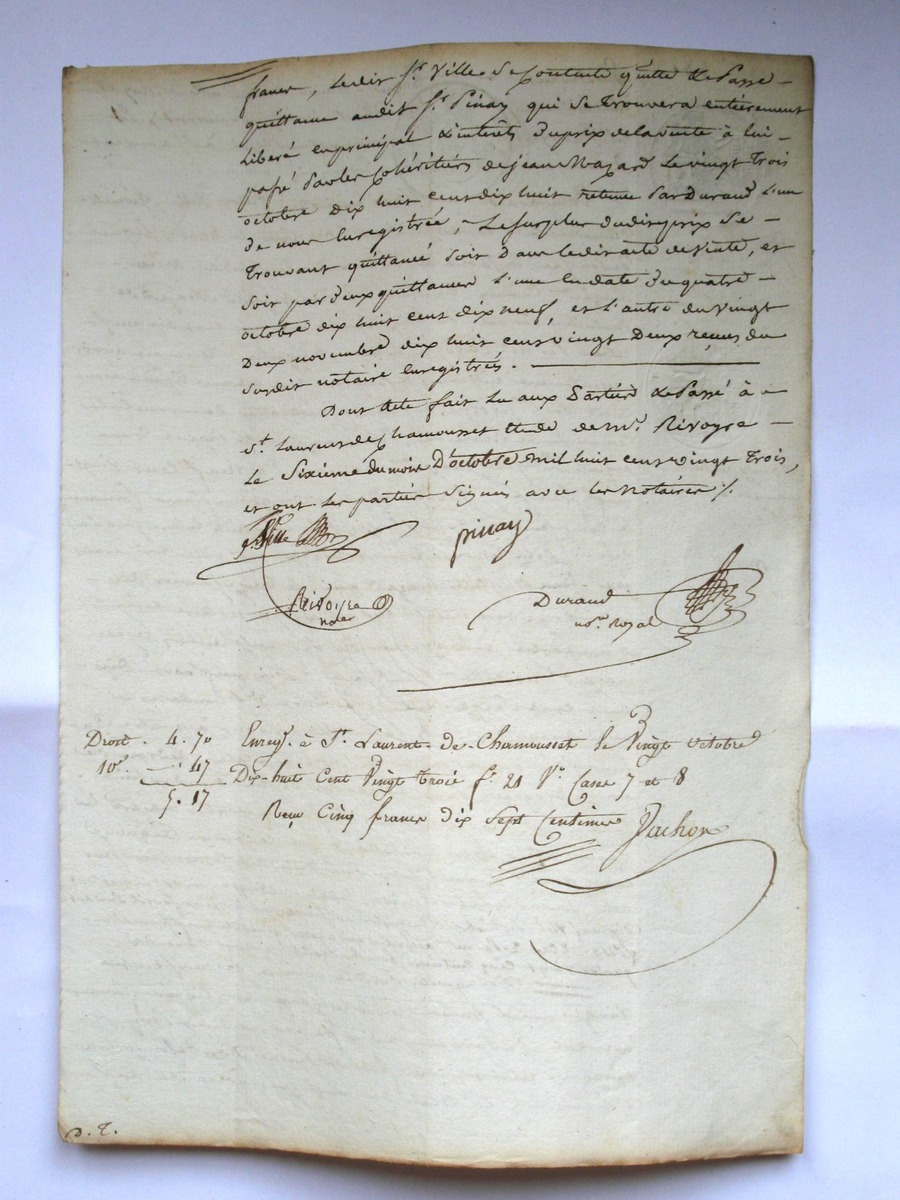 francs, Ledit Sr. Ville se Contente quitte & Passe
quittance audit Sr. Pinay qui se trouvera entièrement
Libéré en principal & intérêts du prix de la vente à lui
passé par les Cohéritiers de jean Mazard Le vingt Trois
octobre dix huit cent dix huit retenue Par Durand L'un
de nous Enregistrée, Le surplus dudit prix se
Trouvant quittancé soit Dans ledit acte de Vente, et
soit par deux quittances L'une En date du quatre
octobre dix huit cent dix neuf, et L'autre du Vingt
Deux novembre dix huit cent vingt Deux reçues du
susdit notaire Enregistrés.
Dont Acte fait Lu aux Parties & Passé à
St. Laurent de Chamousset Etude de Me. Rivoyre
Le Sixième du mois D'octobre Mil huit cent vingt Trois,
et ont les parties Signés avec les Notaires %.
Ville
pinay
Rivoyre
not.er
Durand
no.re Royal
Droit . 4 . 70 Enreg.é à St. Laurent-de-Chamousset le Vingt octobre
10e. 47 Dix-huit Cent Vingt trois f° 21 Vo Case 7 et 8
5 . 17 Reçu Cinq francs dix Sept Centimes Vachon
D. T.